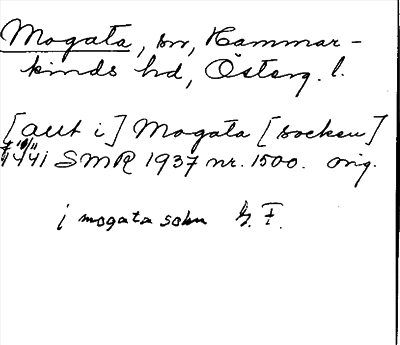 Mogata, sn, Hammar-
kinds hd, Österg. l.
[allt i] Mogata [socken]
1441 SMR 1937 nr. 1500. orig.
i mogata sokn